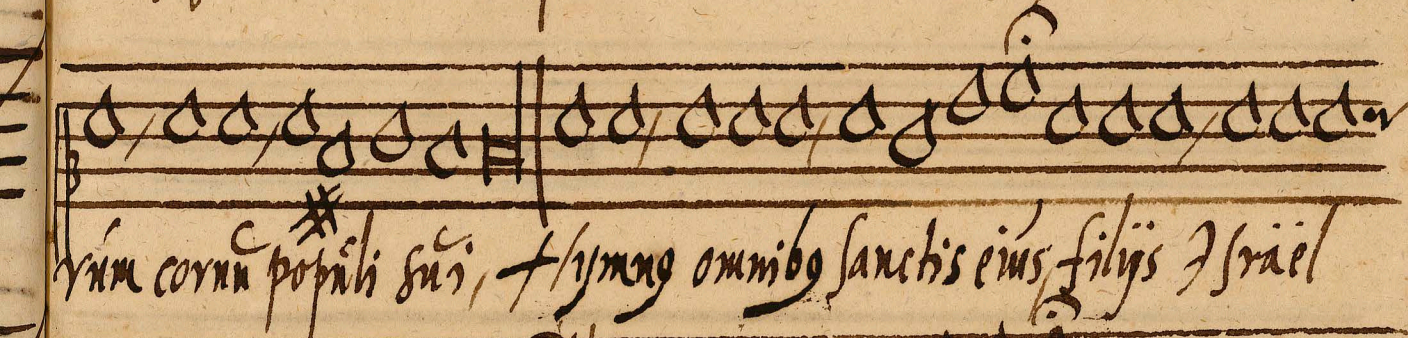 rúm cornũ populi sui, Hymnꝰ omnibꝰ sanctis eius, filijs Israël